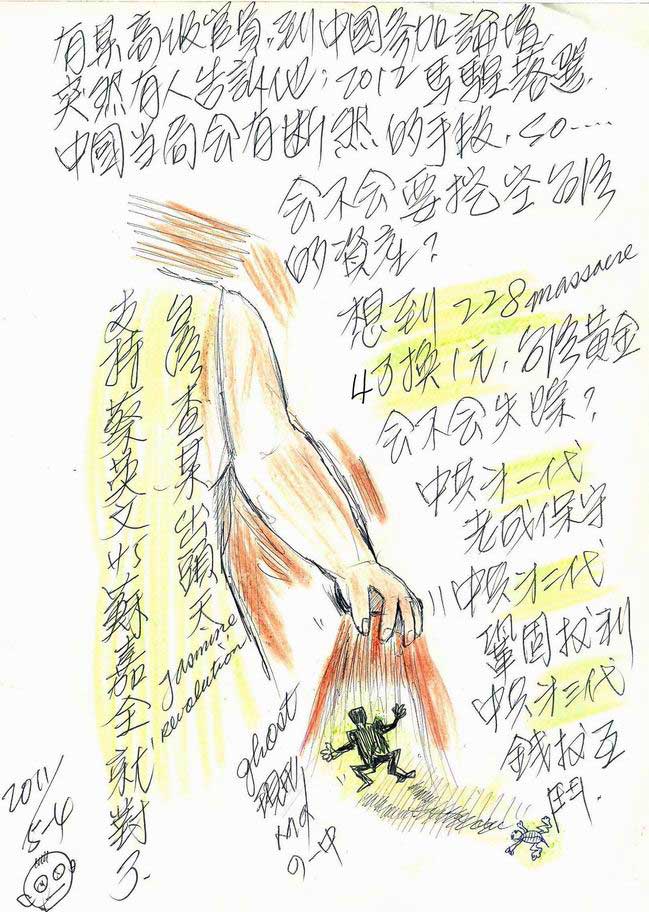 有某高级官員,到中國參加論壇,
突然有人告訴他;2012馬騜落選,
中國当局会有断然的手段,so....
会不会要挖空台湾
的資產?
想到 228 massacre
4万換1元,台湾黃金
会不会失踪?
中共才一代
老成保守
中共才二代
鞏固权利
中共才三代
錢权互
鬥.
台湾查某出頭天
支持蔡英文
蘇嘉全就對了.
Jasmine
revolution
ghost
現形
2011/
5-4